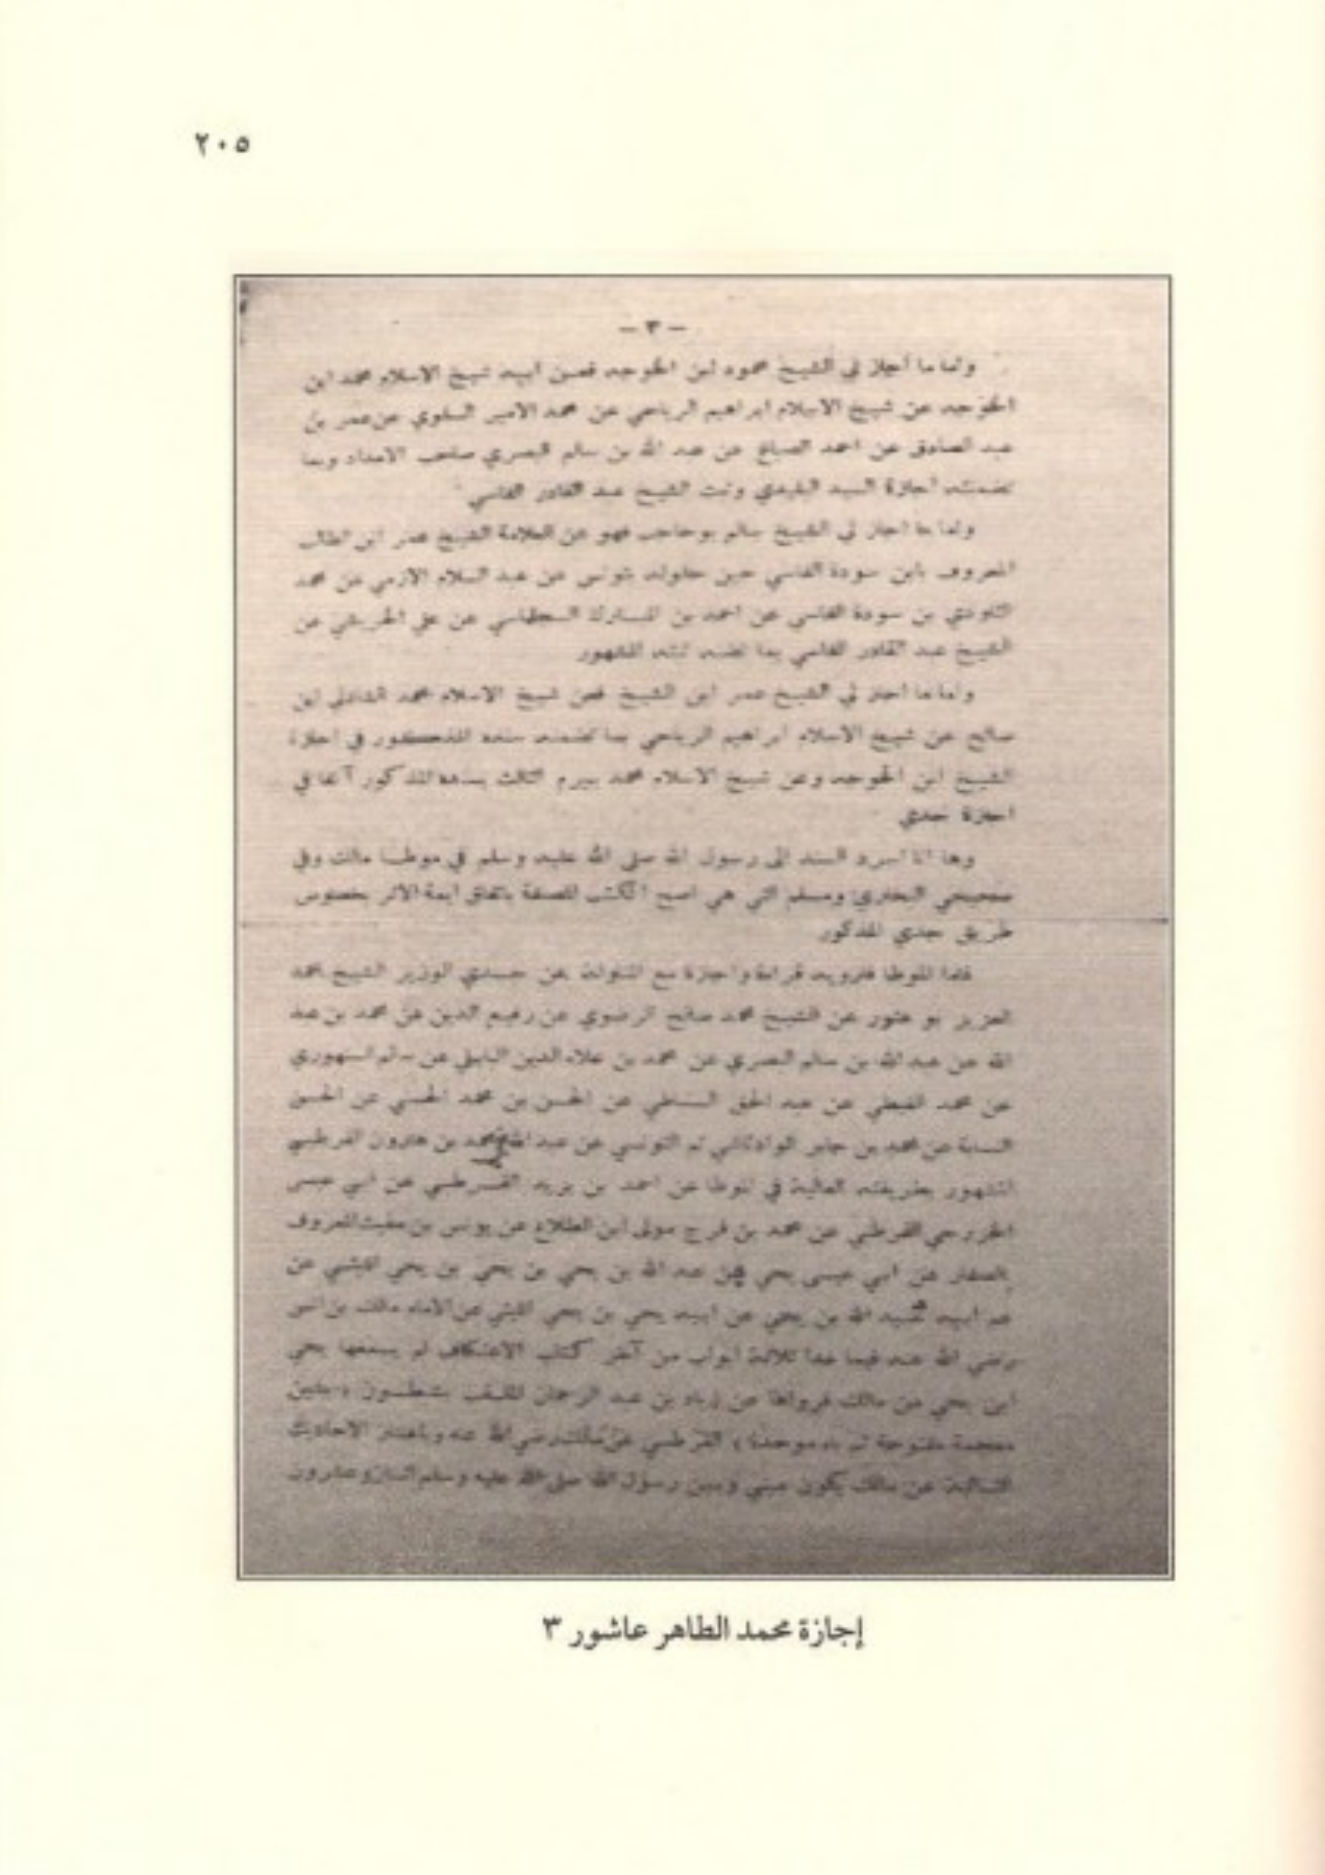 ٢٠٥
– ٣ –
واما ما أجاز لي الشيخ محمود ابن الخوجه فعن ابيه شيخ الاسلام محمد ابن
الخوجه عن شيخ الاسلام ابراهيم الرياحي عن محمد الامير السلوي عن عمر بن
عبد الصادق عن احمد الصباغ عن عبد الله بن سالم البصري صاحب الامداد وبما
تضمنته اجازة السيد البليدي وثبت الشيخ عبد القادر الفاسي
واما ما اجاز لي الشيخ سالم بوحاجب فهو عن العلامة الشيخ عمر ابن الطالب
المعروف بابن سودة الفاسي حين حلوله بتونس عن عبد السلام الازمي عن محمد
التاودي بن سودة الفاسي عن احمد بن المبارك السجلماسي عن علي الحريشي عن
الشيخ عبد القادر الفاسي بما تضمنه ثبته المشهور
واما ما اجاز لي الشيخ عمر ابن الشيخ فعن شيخ الاسلام محمد الشاذلي ابن
صالح عن شيخ الاسلام ابراهيم الرياحي بما تضمنه سنده المذكور في اجازة
الشيخ ابن الخوجه وعن شيخ الاسلام محمد بيرم الثالث بسنده المذكور آنفا في
اجازة جدي
وها انا اسرد السند الى رسول الله صلى الله عليه وسلم في موطا مالك وفي
صحيحي البخاري ومسلم التي هي اصح الكتب المصنفة باتفاق ايمة الاثر بخصوص
طريق جدي المذكور
فاما الموطا فارويه قراءة واجازة مع المناولة عن جدي الوزير الشيخ محمد
العزيز بو عتور عن الشيخ محمد صالح الرضوي عن رفيع الدين عن محمد بن عبد
الله عن عبد الله بن سالم البصري عن محمد بن علاء الدين البابلي عن سالم السنهوري
عن محمد الغيطي عن عبد الحق السنباطي عن الحسن بن محمد الحسني عن الحسن
النسابة عن محمد بن جابر الوادءاشي ثم التونسي عن عبد الله بن محمد بن هارون القرطبي
المشهور بطريقته العالية في الموطا عن احمد بن يزيد القرطبي عن ابي
الخزرجي القرطبي عن محمد بن فرج مولى ابن الطلاع عن يونس بن مغيث المعروف
بالصفار عن ابي عيسى يحي بن عبد الله بن يحي بن يحي بن يحي الليثي عن
عم ابيه عبيد الله بن يحي عن ابيه يحي بن يحي الليثي عن الامام مالك بن انس
رضي الله عنه فيما عدا ثلاثة ابواب من آخر كتاب الاعتكاف لم يسمعها يحي
ابن يحي من مالك فرواها عن زياد بن عبد الرحمان الملقب بشطون «بشين
معجمة مفتوحة ثم باء موحدة» القرطبي عن مالك رضي الله عنه وباعتبار الاحاديث
الثنائية عن مالك يكون بيني وبين رسول الله صلى الله عليه وسلم اثنان وعشرون
إجازة محمد الطاهر عاشور ٣